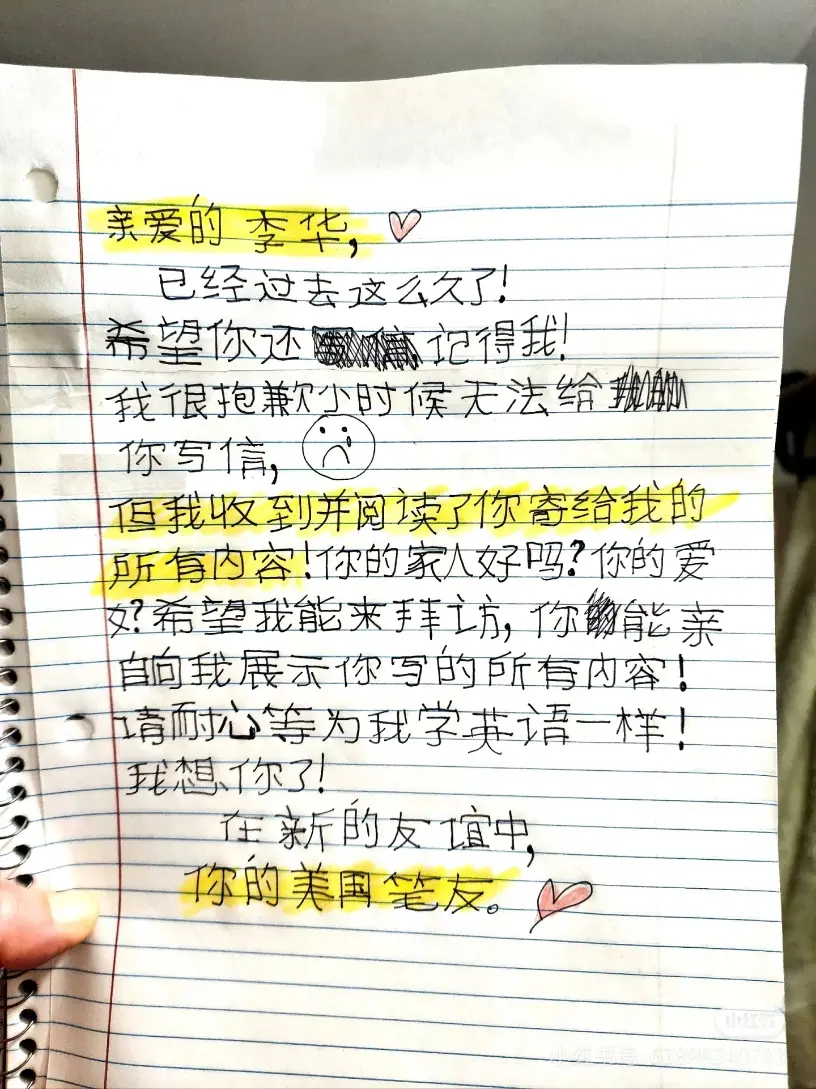 亲爱的 李华,
已经过去这么久了!
希望你还 记得我!
我很抱歉小时候无法给
你写信,
但我收到并阅读了你寄给我的
所有内容!你的家人好吗?你的爱
好?希望我能来拜访,你能亲
自向我展示你写的所有内容!
请耐心等为我学英语一样!
我想你了!
在新的友谊中,
你的美国笔友。
小红书号